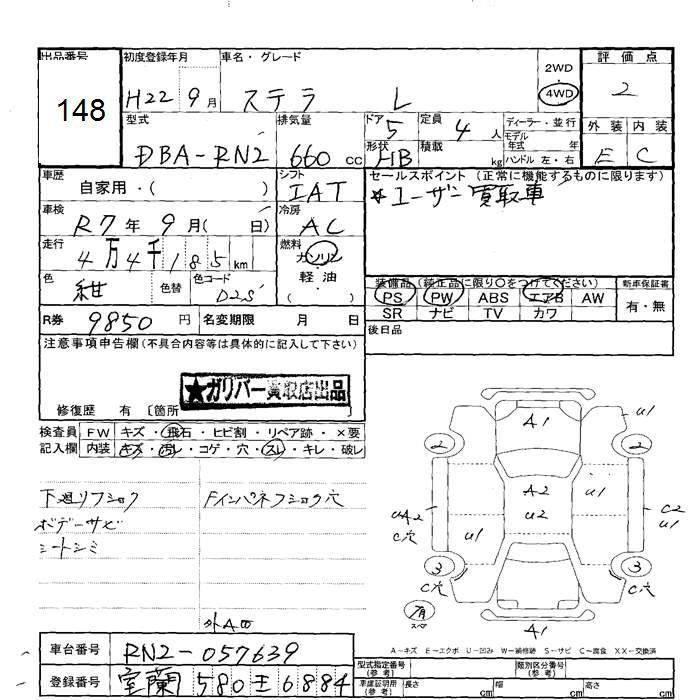 出品番号 初度登録年月 車名・グレード 評価点
148 H22年9月 ステラ L 2WD 4WD 2
型式 排気量 ドア 定員 ディーラー・並行 外装 内装
DBA-RN2 660cc 5 4人 モデル年式 年 E C
形状 積載 ハンドル 左・右
HB kg
車歴 シフト セールスポイント(正常に機能するものに限ります)
自家用・( ) IAT *ユーザー買取車
車検 冷房
R7年9月( 日) AC
走行 燃料
4万4千185km ガソリン
色 色コード 軽油
紺 色替 D2S ( )
装備品(純正品に限り○をつけてください) 新車保証書
PS PW ABS エアB AW 有・無
SR ナビ TV カワ
R券 9850円 名変期限 月 日 後日品
注意事項申告欄(不具合内容等は具体的に記入して下さい)
★ガリバー買取店出品
修復歴 有〔箇所 〕
検査員 FW キズ・飛石・ヒビ割・リペア跡・×要
記入欄 内装 キズ・汚レ・コゲ・穴・スレ・キレ・破レ
下廻リフショク Fインパネフショク穴
ボデーサビ
シートシミ
外A
A1
U1
2 2
A2
U1
UA2 U2 C2
C穴 U1 U1
3 3
C穴 C穴
有
スペア
A1
A〜キズ E〜エクボ U〜凹み W〜補修跡 S〜サビ C〜腐食 XX〜交換済
車台番号 RN2-057639
型式指定番号(参考) 類別区分番号(参考)
登録番号 室蘭 580 王 6884
車庫証明用(参考) 長さ cm 幅 cm 高さ cm